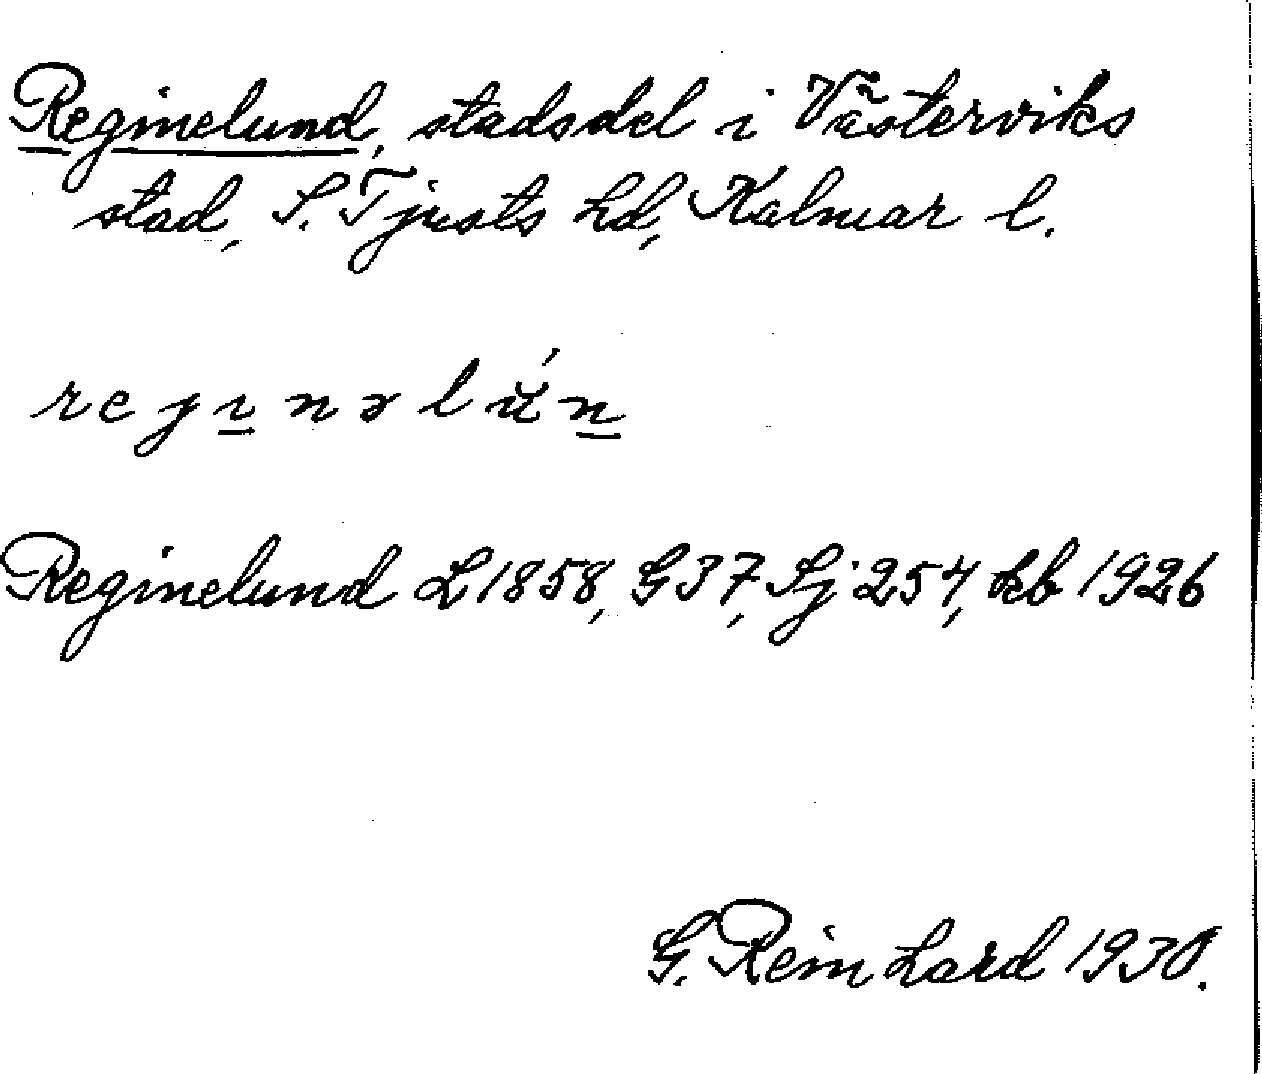 Reginelund, stadsdel i Västerviks
stad, S. Tjusts hd, Kalmar l.
rejɪ̱nəlú̆ṉ
Reginelund L 1858, G 37, Sj 254, kb 1926
G. Reinhard 1930.